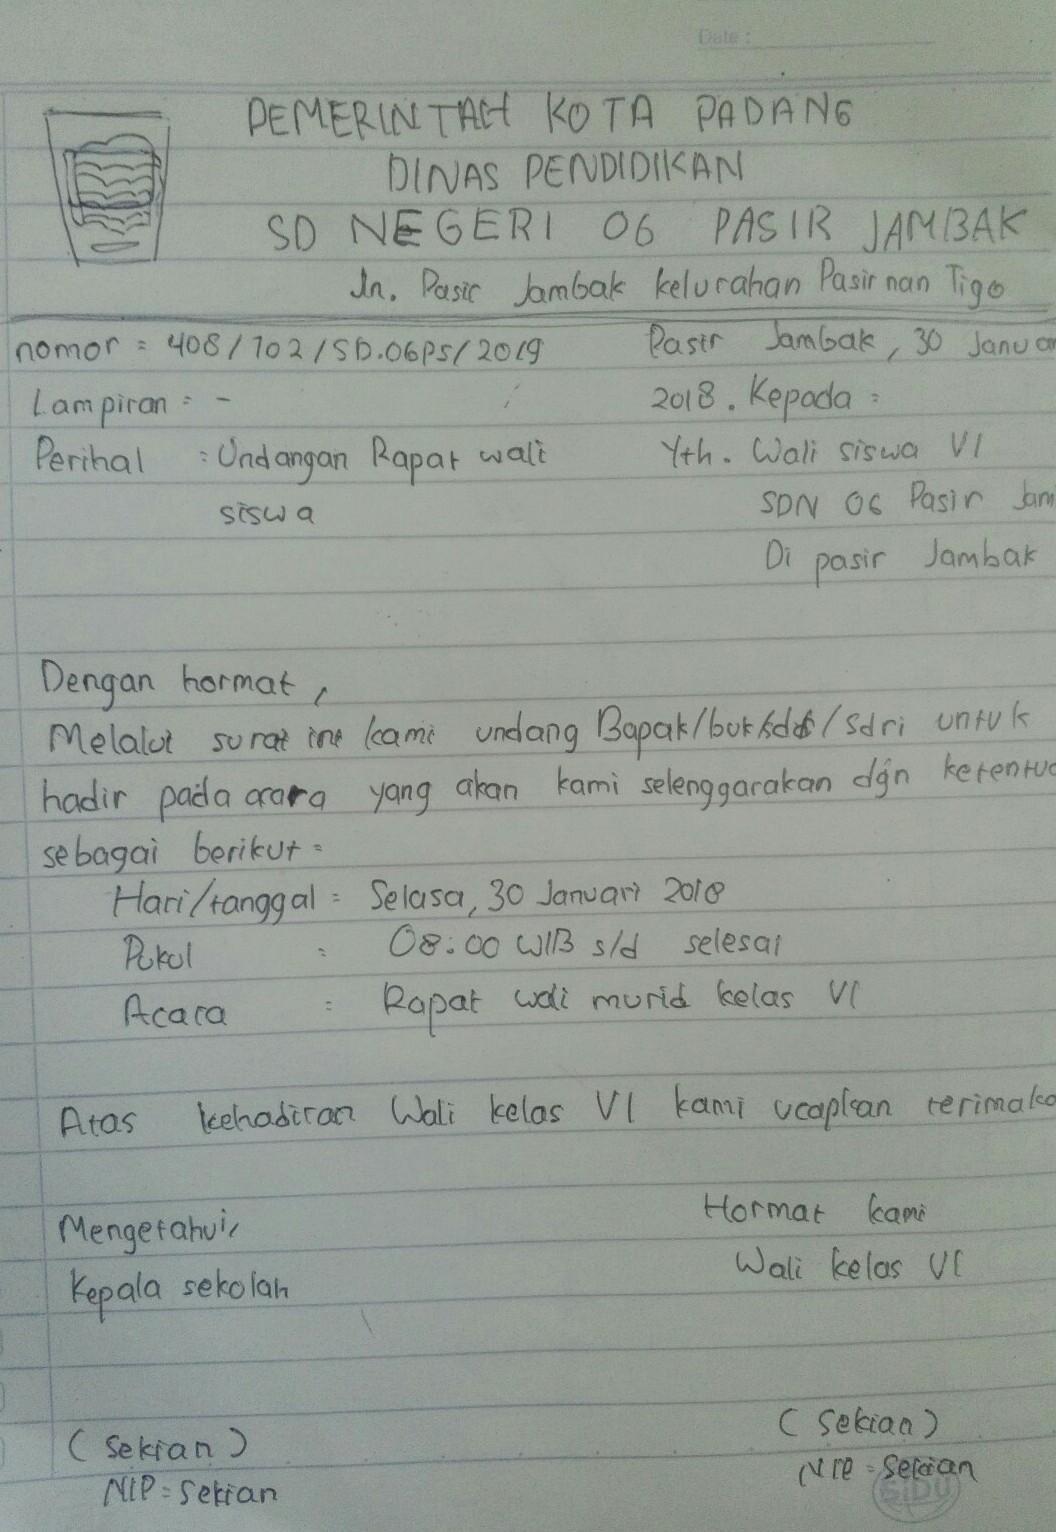 Date :
PEMERINTAH KOTA PADANG
DINAS PENDIDIKAN
SD NEGERI 06 PASIR JAMBAK
Jn. Pasir Jambak kelurahan Pasir nan Tigo
nomor = 408/102/SD.06PS/2019
Pasir Jambak, 30 Januar
Lampiran = -
2018. Kepada =
Perihal : Undangan Rapat wali
siswa
Yth. Wali siswa VI
SDN 06 Pasir Jam
Di pasir Jambak
Dengan hormat,
Melalui surat ini kami undang Bapak/buk/sdr/sdri untuk
hadir pada acara yang akan kami selenggarakan dgn ketentua
sebagai berikut =
Hari/tanggal = Selasa, 30 Januari 2018
Pukul : 08:00 WIB s/d selesai
Acara : Rapat wali murid kelas VI
Atas kehadiran Wali kelas VI kami ucapkan terimaka
Mengetahui,
Kepala sekolah
Hormat kami
Wali kelas VI
(Sekian)
NIP = Sekian
(Sekian)
NIP = Sekian
SIDU